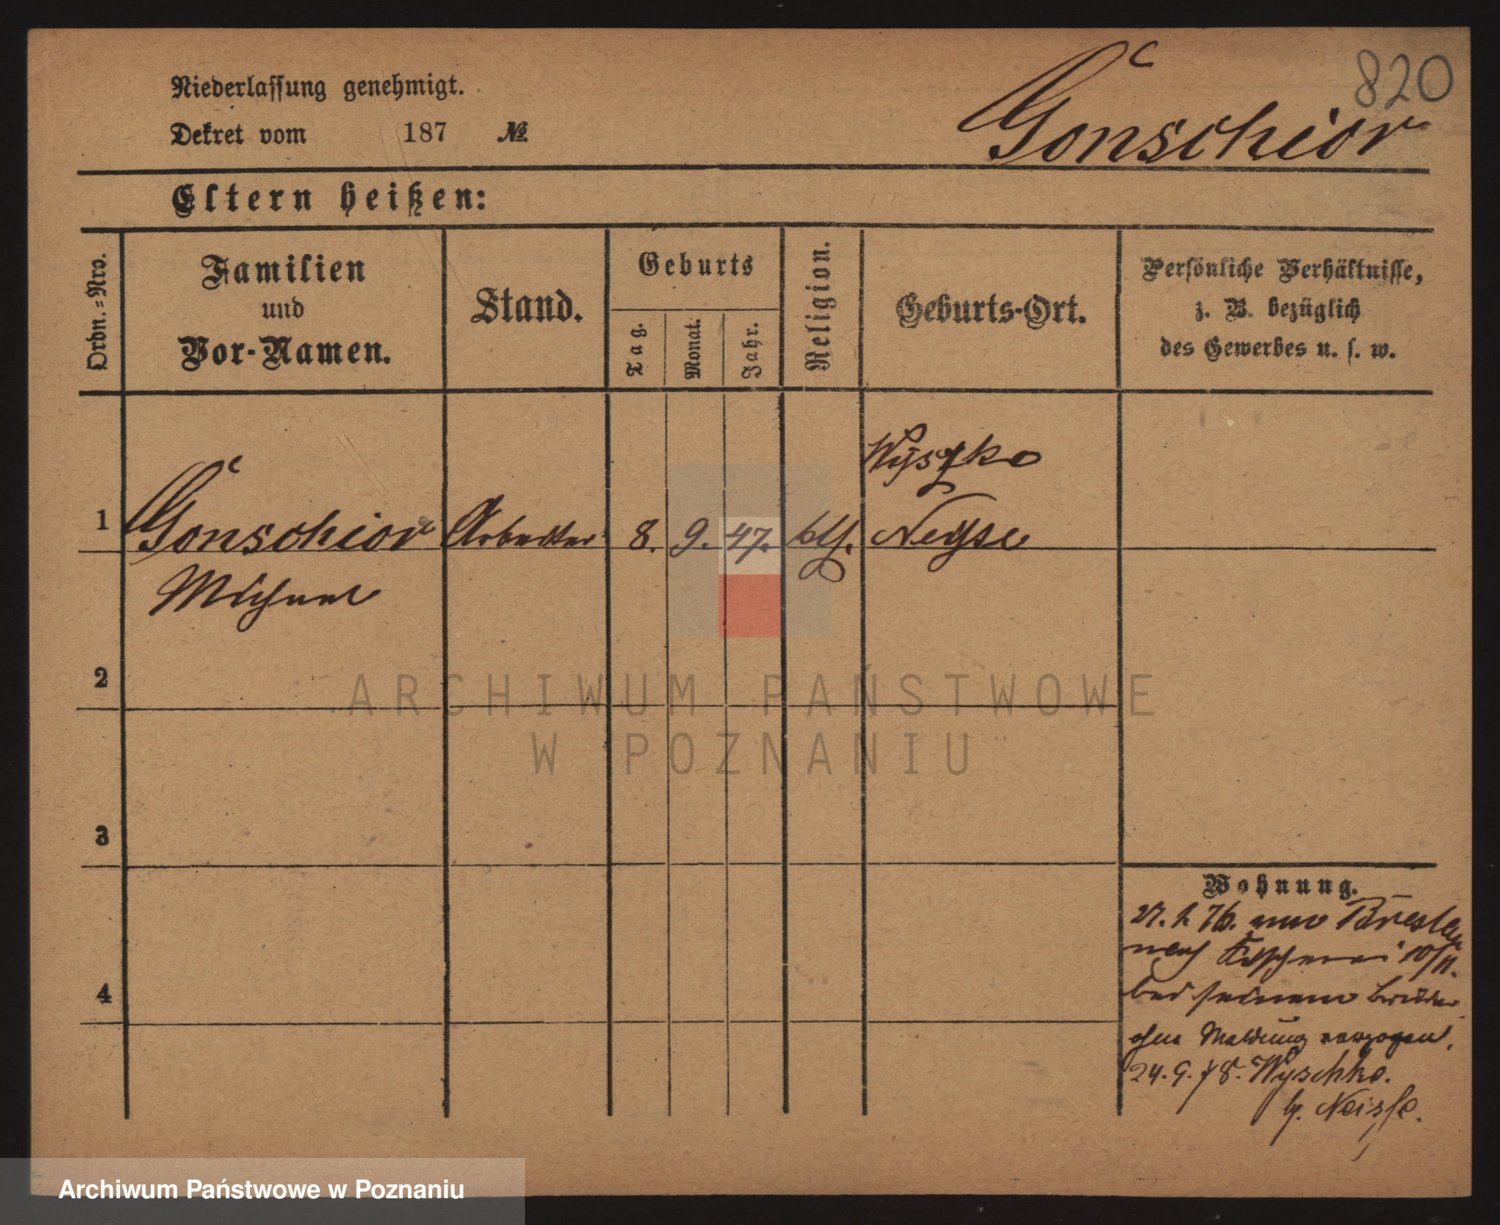 820
Niederlassung genehmigt.
Gonschior
Dekret vom 187 №
Eltern heißen:
Ordn.-Nro.
Familien
und
Vor-Namen.
Stand.
Geburts
Tag.
Monat.
Jahr.
Religion.
Geburts-Ort.
Persönliche Verhältnisse,
z. B. bezüglich
des Gewerbes u. s. w.
Wyszko
1 Gonschior Arbeiter 8. 9. 47. kth. Neysse
Michael
2
ARCHIWUM PAŃSTWOWE
W POZNANIU
3
Wohnung.
76. Breslau
nach Fischerei 10/11.
bei seinem Bruder
ohne Meldung verzogen.
24.9.78. Wyschko.
b. Neisse.
4
Archiwum Państwowe w Poznaniu